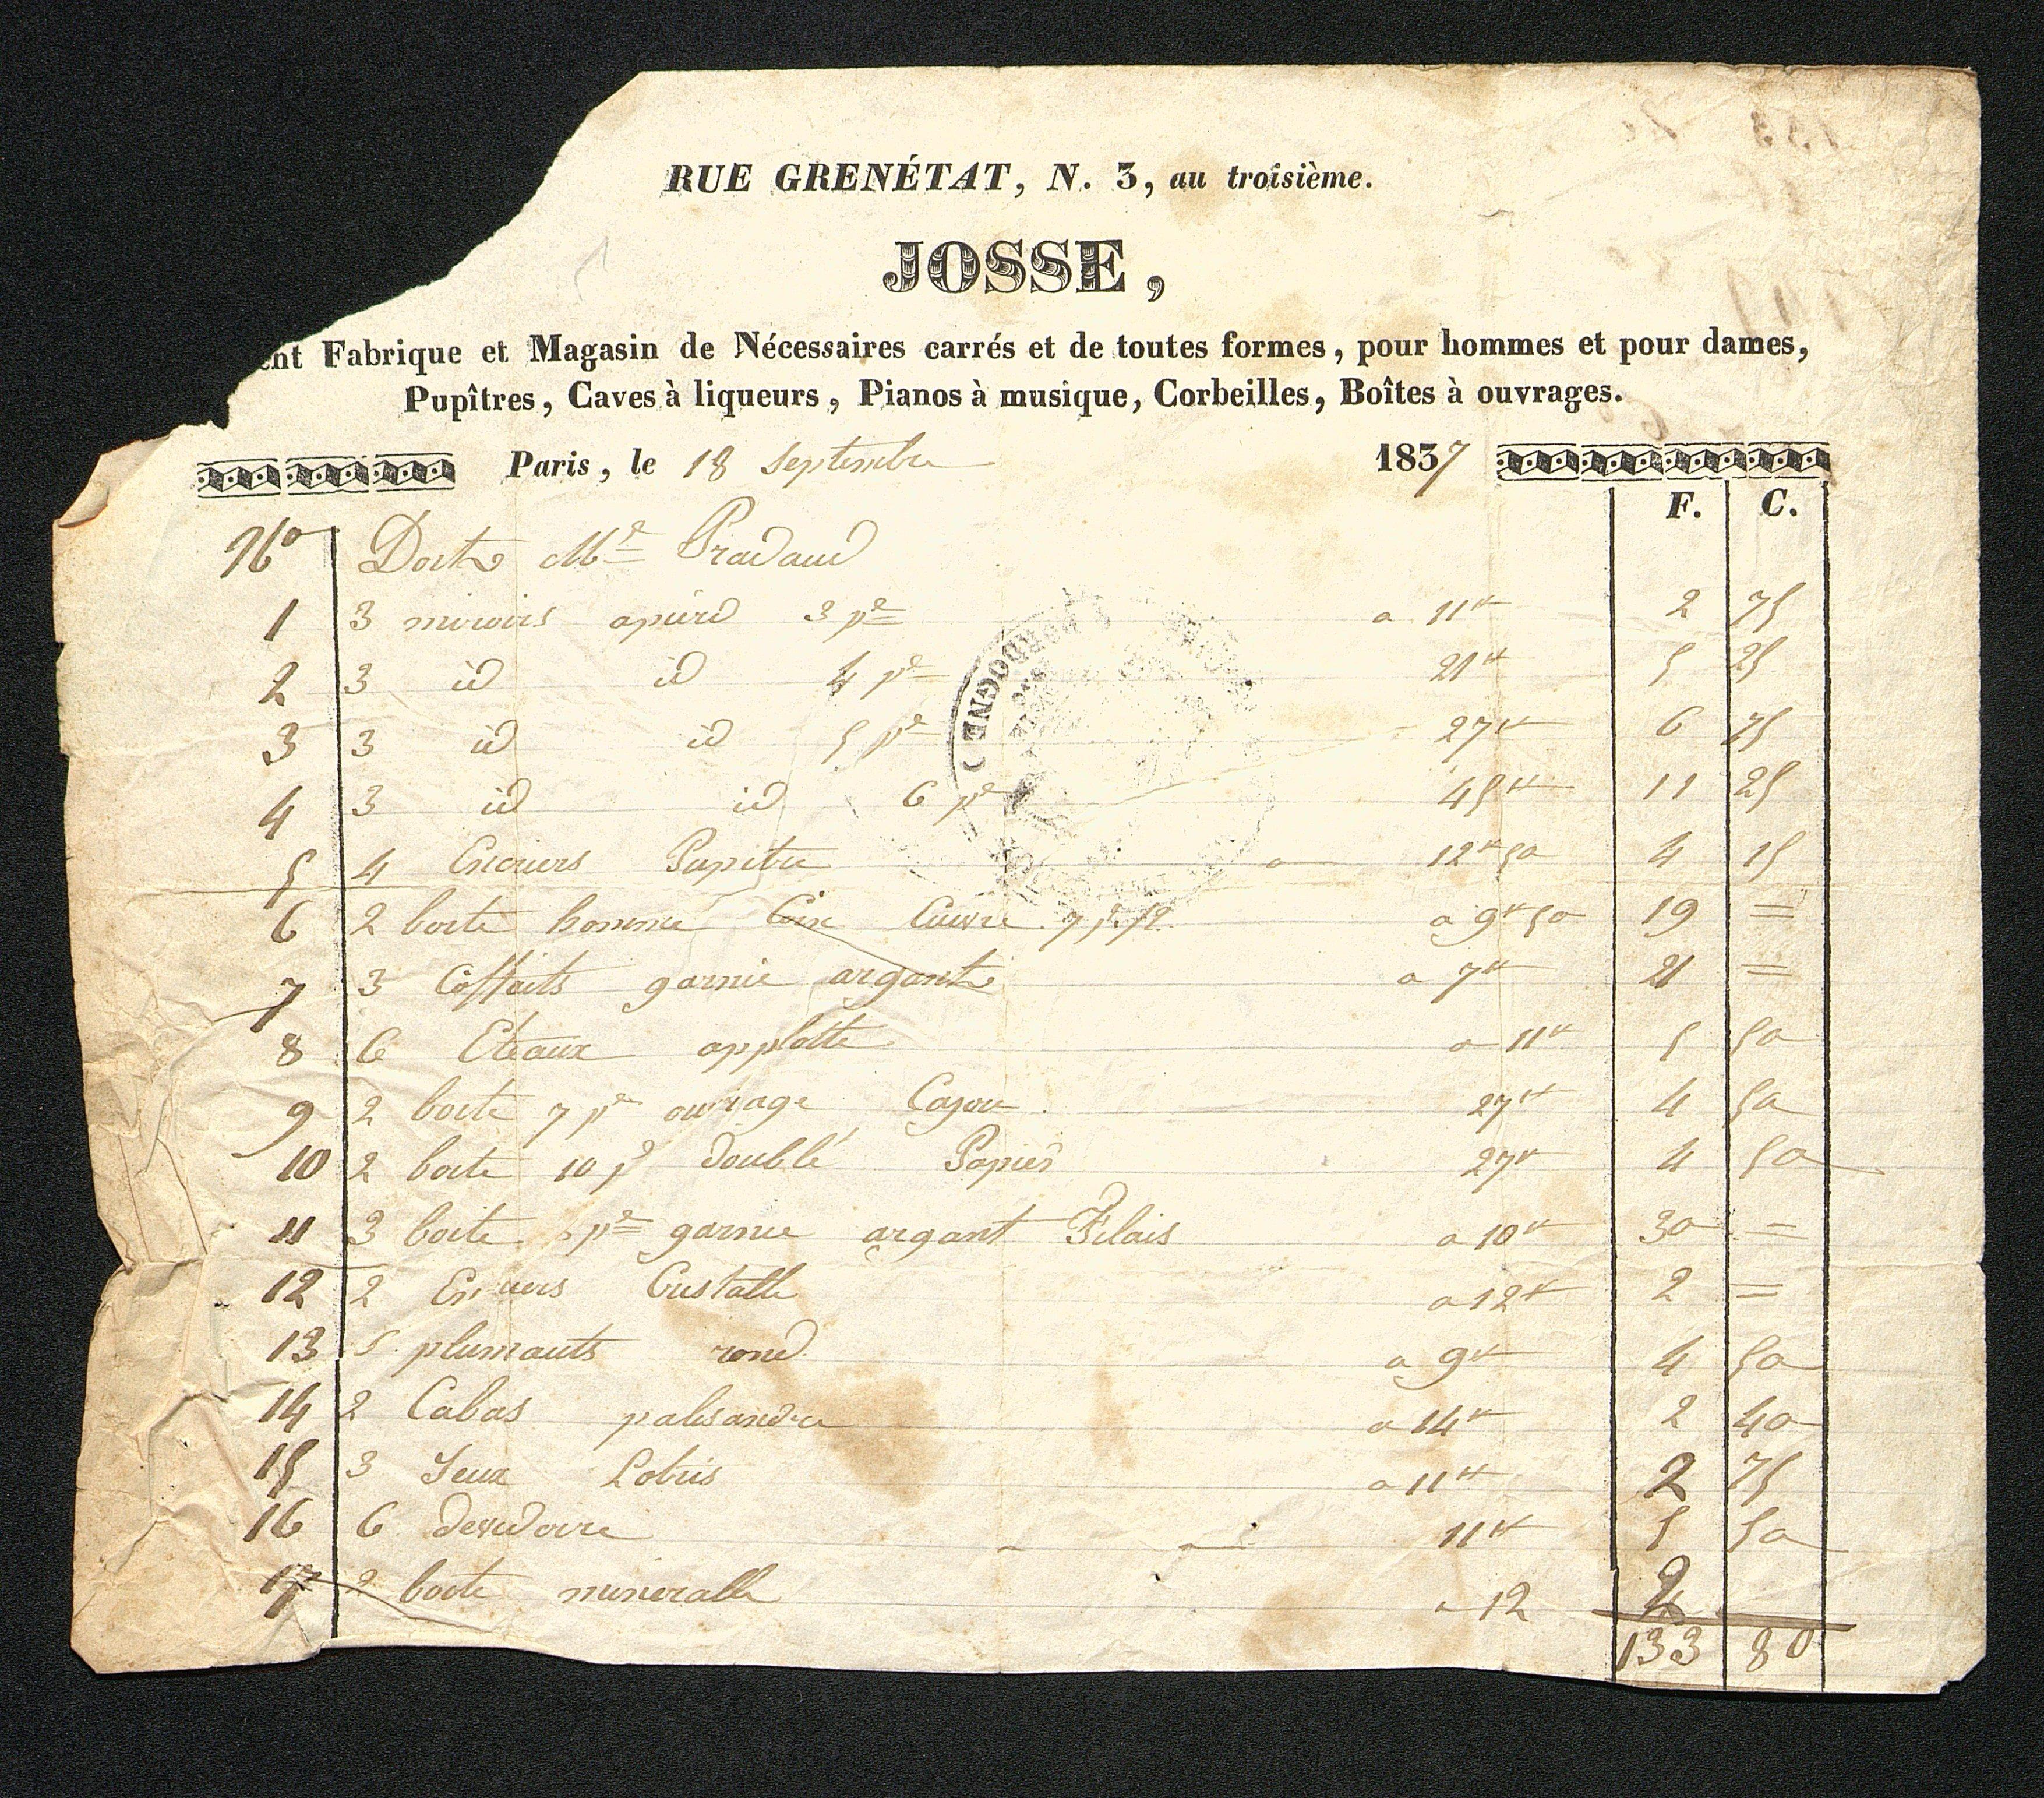 RUE GRENÉTAT, N. 3, au troisième.
JOSSE,
ent Fabrique et Magasin de Nécessaires carrés et de toutes formes, pour hommes et pour dames,
Pupîtres, Caves à liqueurs, Pianos à musique, Corbeilles, Boîtes à ouvrages.
Paris, le 18 Septembre 1837
F. C.
No Doit Mr Pradaud
1 3 miroirs 3 pce a 11 2 75
2 3 id id 4 pce 21 5 25
3 3 id id 5 pce 27 6 75
4 3 id id 6 pce 45 11 25
5 4 Encriers Pupitre a 12 50 4 15
6 2 boite homme Coin Cuivre a 9 50 19 =
7 3 Coffaits garnie argante a 7 21 =
8 6 a 11 5 50
9 2 boite 7 pce ouvrage 27 4 50
10 2 boite 10 p doublé Papier 27 4 50
11 3 boite pce garnie argant Filais a 10 30 =
12 2 Cristalle a 12 2 =
13 5 plumauts rond a 9 4 50
14 2 Cabas palisandre a 14 2 40
15 3 Jeux Lotris a 11 2 75
16 6 devidoire 11 5 50
17 2 boite mineralle a 12 2
133 80
DORDOGNE